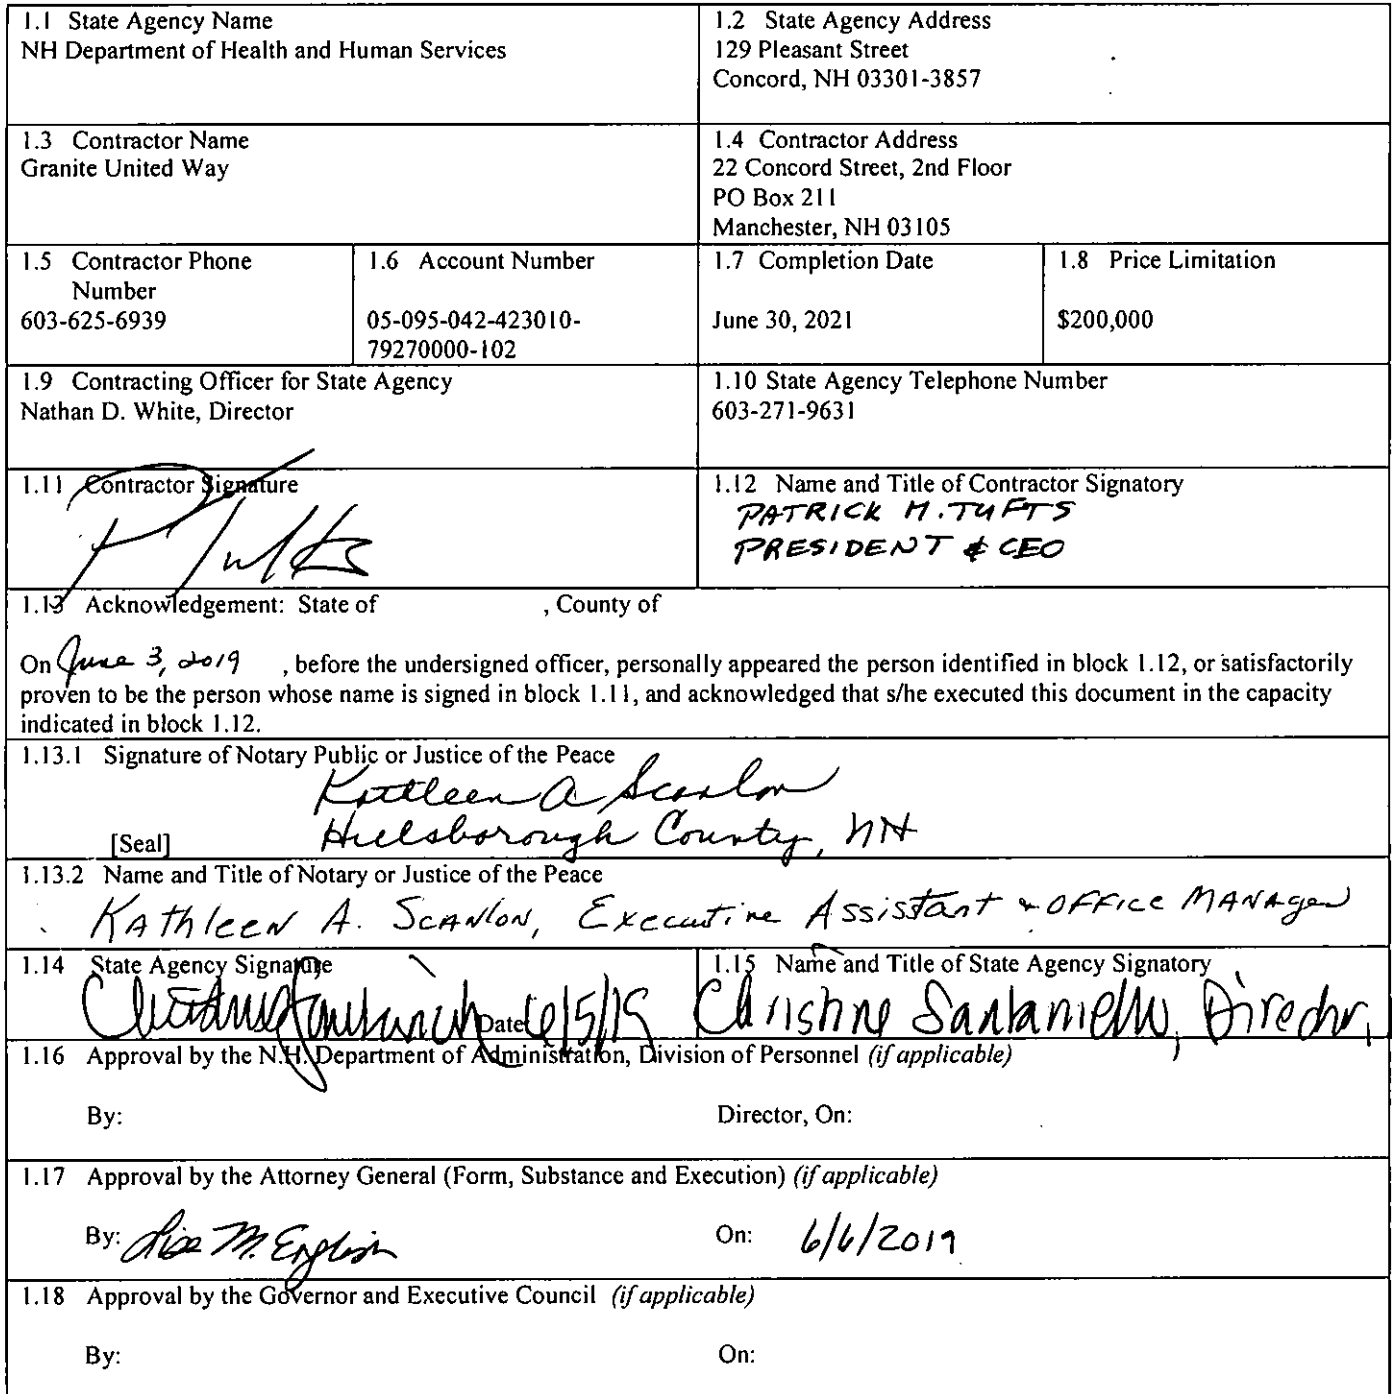 1.1 State Agency Name
NH Department of Health and Human Services
1.2 State Agency Address
129 Pleasant Street
Concord, NH 03301-3857
1.3 Contractor Name
Granite United Way
1.4 Contractor Address
22 Concord Street, 2nd Floor
PO Box 211
Manchester, NH 03105
1.5 Contractor Phone
Number
603-625-6939
1.6 Account Number
05-095-042-423010-
79270000-102
1.7 Completion Date
June 30, 2021
1.8 Price Limitation
$200,000
1.9 Contracting Officer for State Agency
Nathan D. White, Director
1.10 State Agency Telephone Number
603-271-9631
1.11 Contractor Signature
1.12 Name and Title of Contractor Signatory
PATRICK M. TUFTS
PRESIDENT & CEO
1.13 Acknowledgement: State of , County of
On June 3, 2019 , before the undersigned officer, personally appeared the person identified in block 1.12, or satisfactorily
proven to be the person whose name is signed in block 1.11, and acknowledged that s/he executed this document in the capacity
indicated in block 1.12.
1.13.1 Signature of Notary Public or Justice of the Peace
Kathleen A Scanlon
[Seal] Hillsborough County, NH
1.13.2 Name and Title of Notary or Justice of the Peace
KAthleen A. ScANlON, Executive Assistant & OFFice MANAger
1.14 State Agency Signature
Date 6/5/19
1.15 Name and Title of State Agency Signatory
Christine Santaniello, Director,
1.16 Approval by the N.H. Department of Administration, Division of Personnel (if applicable)
By: Director, On:
1.17 Approval by the Attorney General (Form, Substance and Execution) (if applicable)
By: Lisa M. English On: 6/6/2019
1.18 Approval by the Governor and Executive Council (if applicable)
By: On: